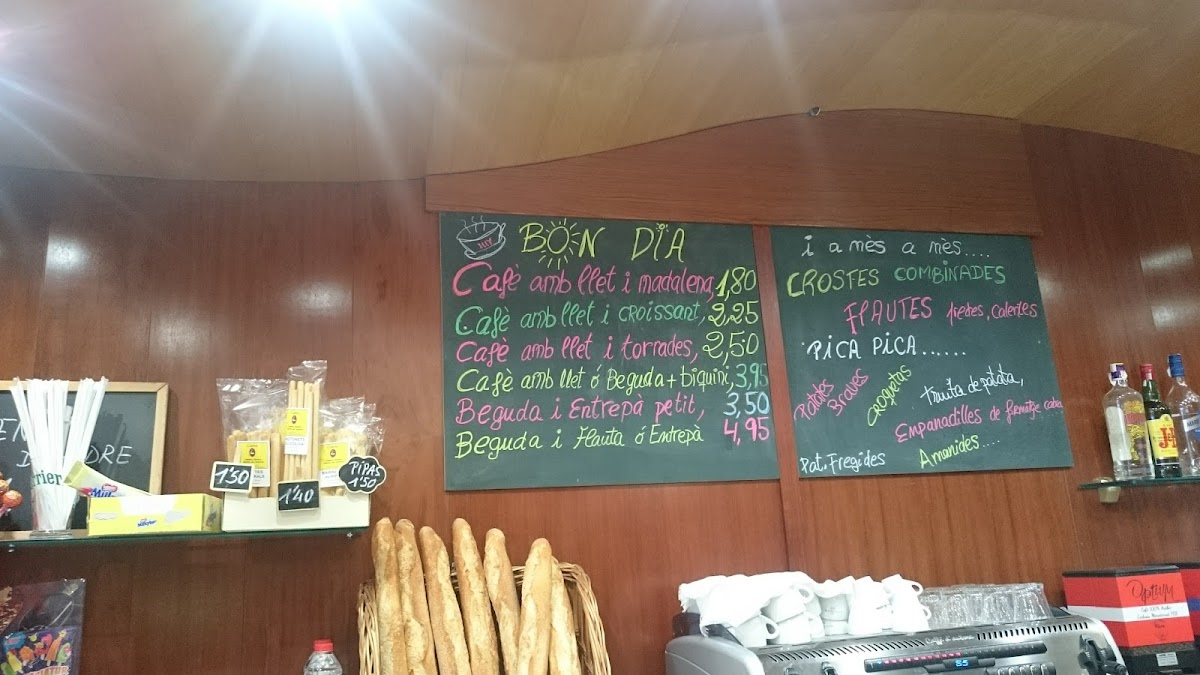 BON DIA
Cafè amb llet i madalena, 1,80
Cafè amb llet i croissant, 2,25
Cafè amb llet i torrades, 2,50
Cafè amb llet ó Beguda + biquini, 3,95
Beguda i Entrepà petit, 3,50
Beguda i Flauta ó Entrepà 4,95
i a mès a mès....
CROSTES COMBINADES
FLAUTES fredes, calentes
PICA PICA......
Patates Braves
Croquetas
Truita de patata,
Empanadilles de formatge cabra
Pat. Fregides
Amanides....
1'50
1'40
PIPAS
1'50
Optimum
55